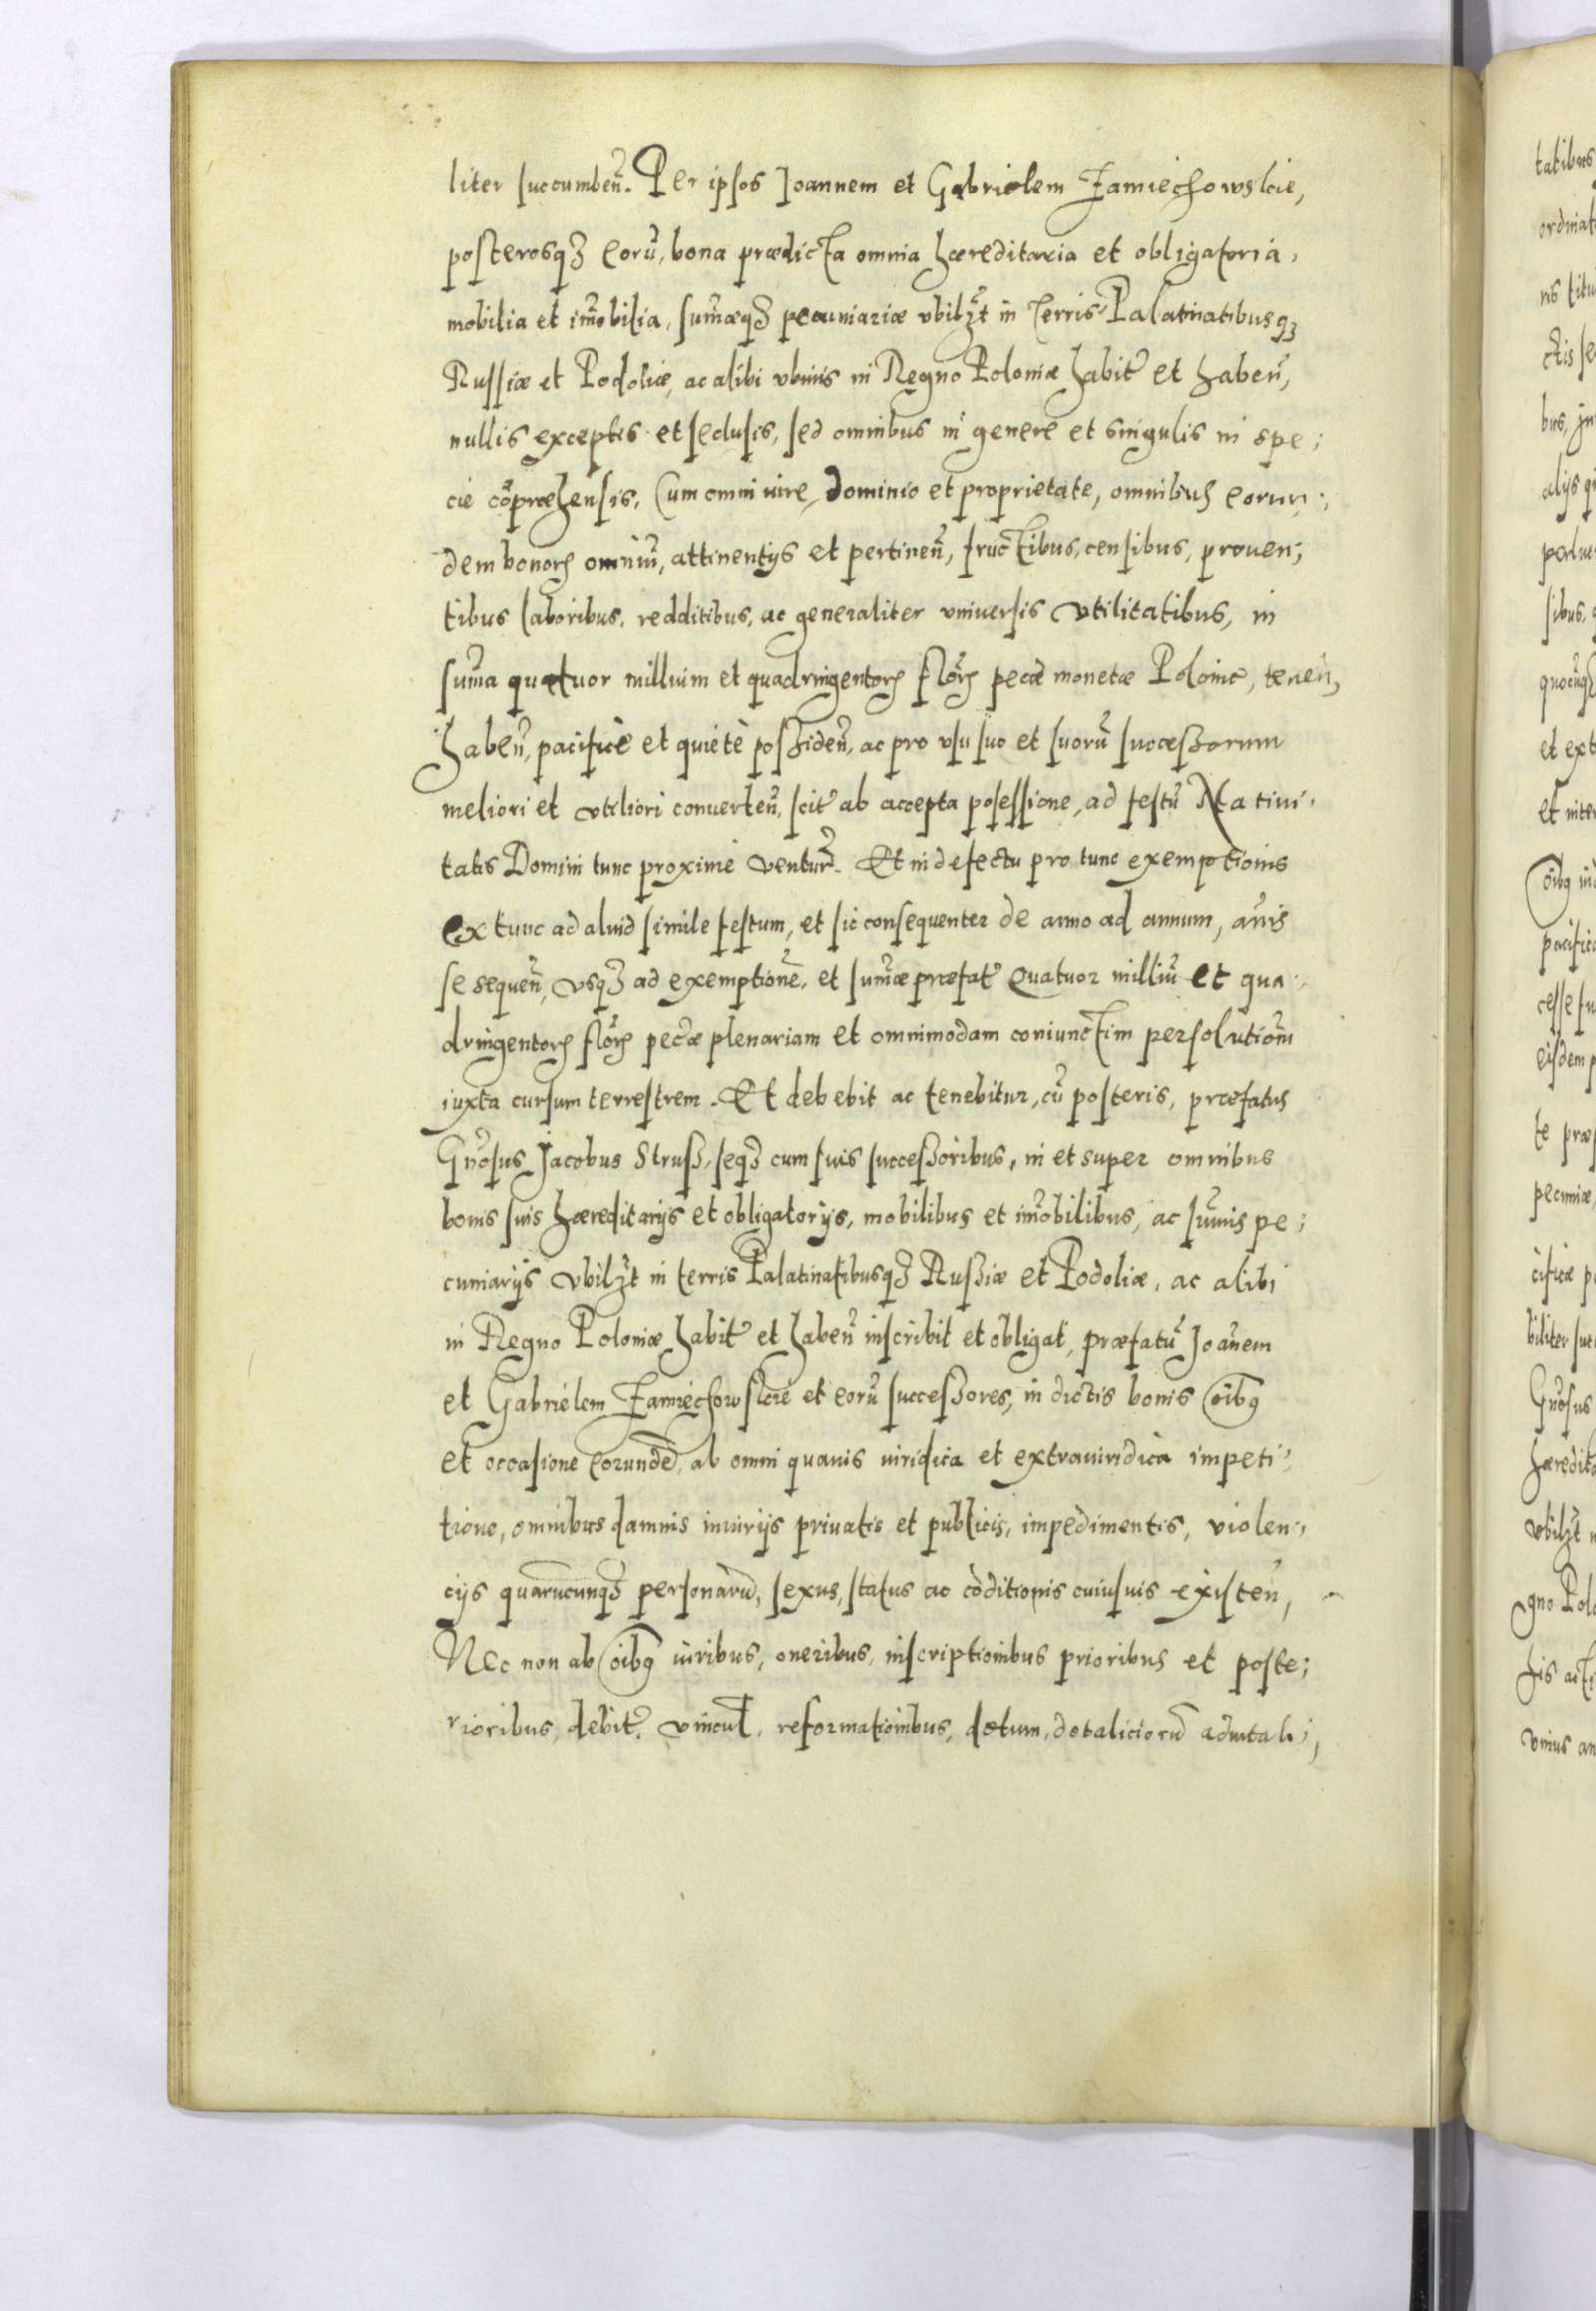 liter succumbeñ. Per ipsos Joannem et Gabrielem Zamiechowskie,
posterosqȝ eorũ, bona prædicta omnia hæreditaria et obligatoria,
mobilia et im̃obilia, sum̃æqȝ pecuniariæ vbilȝt in terris Palatinatibusqȝ
Russiæ et Podoliæ, ac alibi vbiuis in Regno Poloniæ habit̃ et habeñ,
nullis exceptis et seclusis, sed omnibus in genere et singulis in spe;
cie cõpræhensis, Cum omni iure, dominio et proprietate, omnibus eorun;
dem bonorꝝ omniũ, attinentijs et pertineñ, fructibus, censibus, prouen;
tibus laboribus, redditibus, ac generaliter vniuersis vtilitatibus, in
sum̃a quatuor millium et quadringentorꝝ flõrꝝ pecæ monetæ Polonicæ, teneñ,
habeñ, pacificè et quietè possideñ, ac pro vsu suo et suorũ successorum
meliori et vtiliori conuerteñ, scit̃ ab accepta posessione, ad festũ Natiui,
tatis Domini tunc proximè ventur̃. Et in defectu pro tunc exemptionis
ex tunc ad aliud simile festum, et sic consequenter de anno ad annum, añis
se sequeñ, vsqȝ ad exemptionẽ, et sum̃æ præfat̃ quatuor milliũ et qua;
dringentorꝝ flõrꝝ pecæ plenariam et omnimodam coniunctim persolutioñ
iuxta cursum terrestrem. Et debebit ac tenebitur, cũ posteris, præfatus
Gñosus Jacobus Struss, seqȝ cum suis successoribus, in et super omnibus
bonis suis hæreditarijs et obligatorijs, mobilibus et im̃obilibus, ac sum̃is pe;
cuniarijs vbilȝt in terris Palatinatibusqȝ Russiæ et Podoliæ, ac alibi
in Regno Poloniæ habit̃ et habeñ inscribit et obligat, præfatũ Joañem
et Gabrielem Zamiechowskie et eorũ successores, in dictis bonis oĩbꝯ
et occasione eorundẽ, ab omni quauis iuridica et extraiuridica impeti;
tione, omnibus damnis iniurijs priuatis et publicis, impedimentis, violen;
cijs quarũcunqȝ personarũ, sexus, status ac cõditionis cuiusuis existeñ,
Nec non ab oĩbꝯ iuribus, oneribus, inscriptionibus prioribus et poste;
rioribus, debit̃, vincul̃, reformationibus, dotum, dotaliciorũ aduitali;